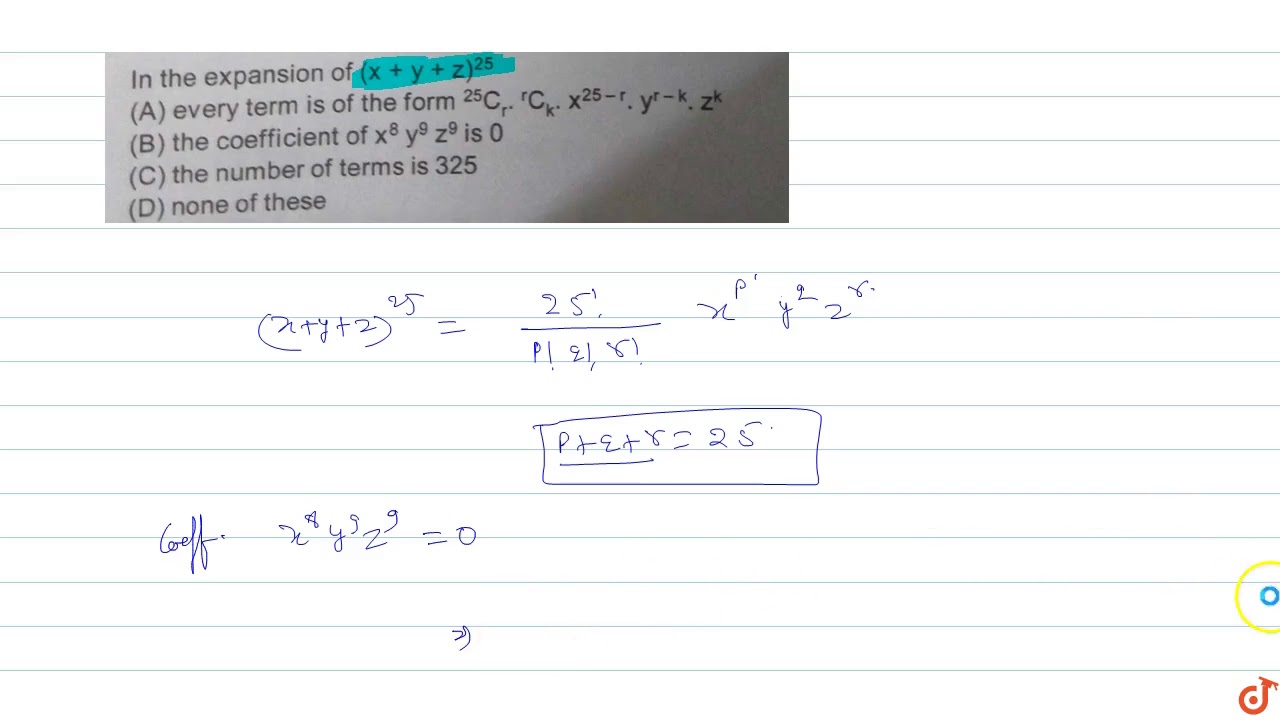 In the expansion of (x + y + z)²⁵
(A) every term is of the form ²⁵Cᵣ. ʳCₖ. x²⁵⁻ʳ. yʳ⁻ᵏ. zᵏ
(B) the coefficient of x⁸ y⁹ z⁹ is 0
(C) the number of terms is 325
(D) none of these
(x+y+z)²⁵ = 25! / p! q! r! xᵖ y^q zʳ
p+q+r = 25
Coeff. x⁸ y⁹ z⁹ = 0
⇒